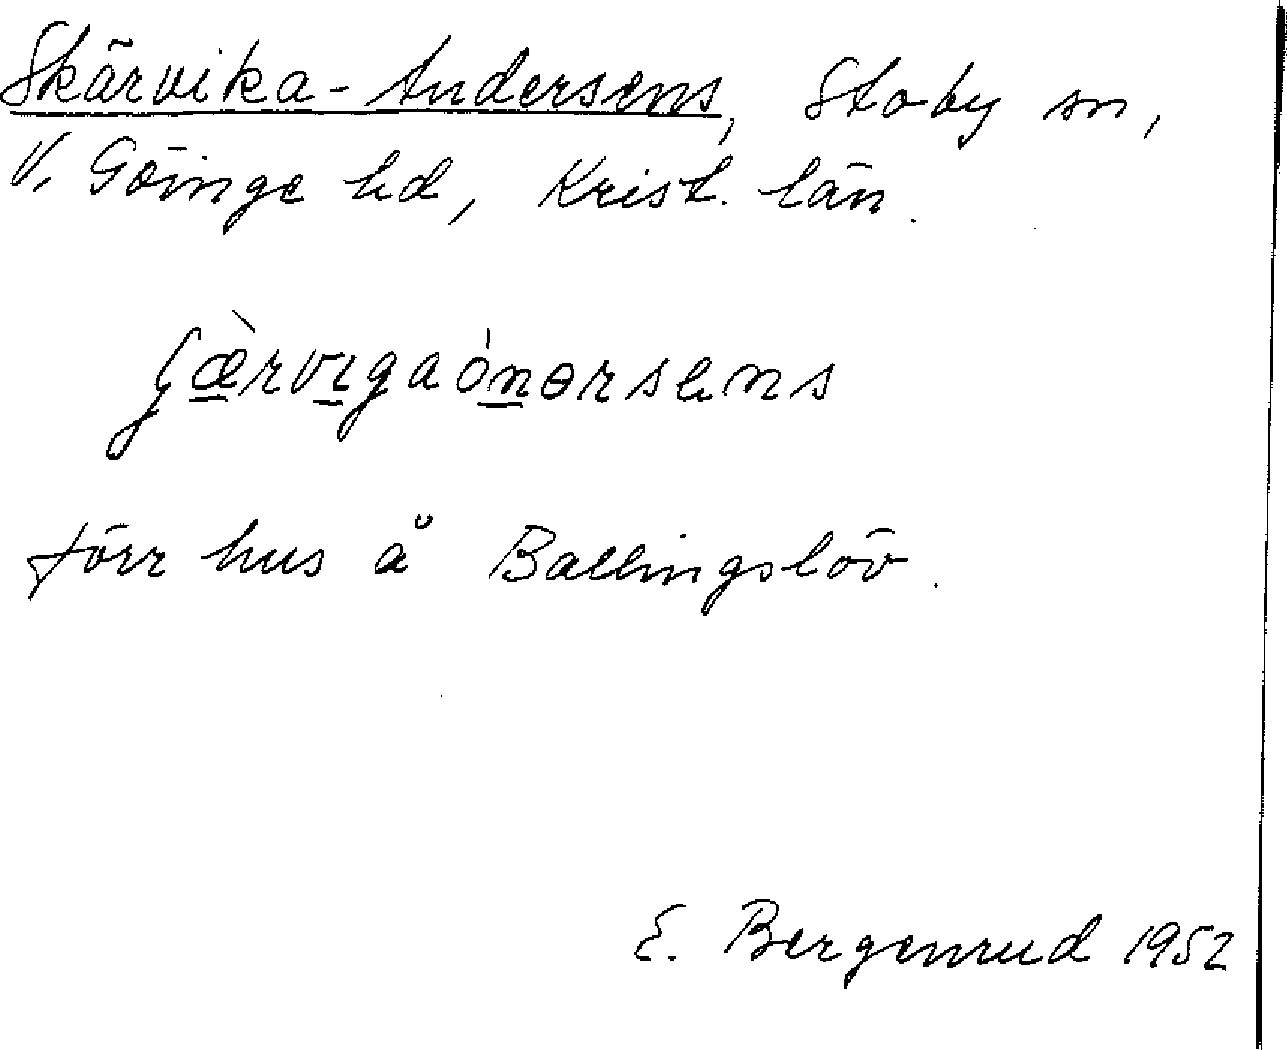 Skärvika-Andersens, Stoby sn,
V. Göinge hd, Krist. län.
ʃæ̀rvɪgaónərsens
förr hus å Ballingslöv.
E. Bergenrud 1952